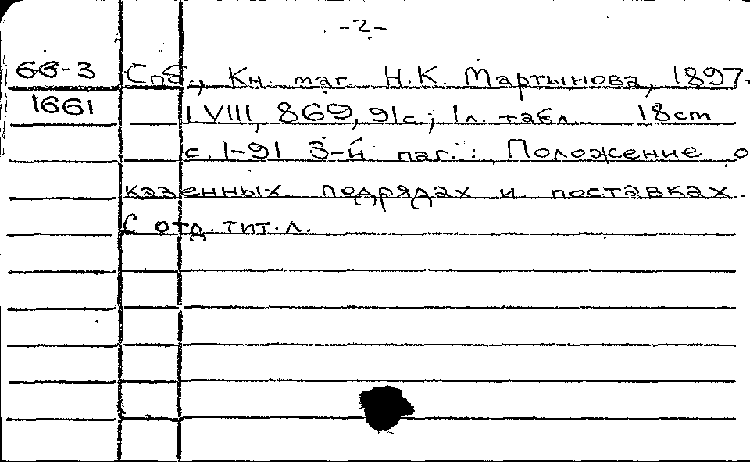 -2-
66-3 Спб., Кн. маг. Н.К. Мартынова, 1897.
1661 LVIII, 869, 91с.; 1л. табл. 18cm
с. 1-91 3-й паг.: Положение о
казенных подрядах и поставках.
С отд. тит. л.